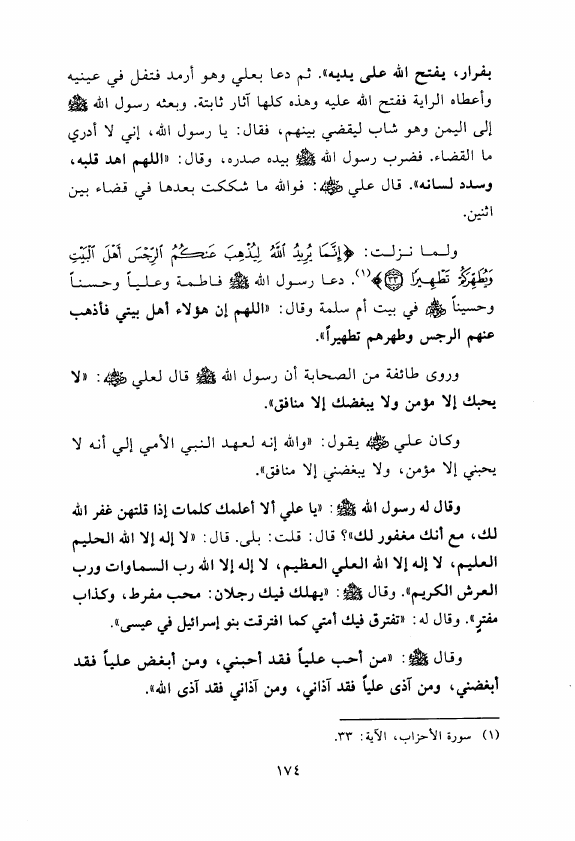 بفرار، يفتح الله على يديه». ثم دعا بعلي وهو أرمد فتفل في عينيه
وأعطاه الراية ففتح الله عليه وهذه كلها آثار ثابتة. وبعثه رسول الله ﷺ
إلى اليمن وهو شاب ليقضي بينهم، فقال: يا رسول الله، إني لا أدري
ما القضاء. فضرب رسول الله ﷺ بيده صدره، وقال: «اللهم اهد قلبه،
وسدد لسانه». قال علي رضي الله عنه: فوالله ما شككت بعدها في قضاء بين
اثنين.
ولما نزلت: ﴿إِنَّمَا يُرِيدُ اللَّهُ لِيُذْهِبَ عَنكُمُ الرِّجْسَ أَهْلَ الْبَيْتِ
وَيُطَهِّرَكُمْ تَطْهِيرًا ٣٣﴾(١). دعا رسول الله ﷺ فاطمة وعلياً وحسناً
وحسيناً رضي الله عنهم في بيت أم سلمة وقال: «اللهم إن هؤلاء أهل بيتي فأذهب
عنهم الرجس وطهرهم تطهيراً».
وروى طائفة من الصحابة أن رسول الله ﷺ قال لعلي رضي الله عنه: «لا
يحبك إلا مؤمن ولا يبغضك إلا منافق».
وكان علي رضي الله عنه يقول: «والله إنه لعهد النبي الأمي إلي أنه لا
يحبني إلا مؤمن، ولا يبغضني إلا منافق».
وقال له رسول الله ﷺ: «يا علي ألا أعلمك كلمات إذا قلتهن غفر الله
لك، مع أنك مغفور لك»؟ قال: قلت: بلى. قال: «لا إله إلا الله الحليم
العليم، لا إله إلا الله العلي العظيم، لا إله إلا الله رب السماوات ورب
العرش الكريم». وقال ﷺ: «يهلك فيك رجلان: محب مفرط، وكذاب
مفترٍ». وقال له: «تفترق فيك أمتي كما افترقت بنو إسرائيل في عيسى».
وقال ﷺ: «من أحب علياً فقد أحبني، ومن أبغض علياً فقد
أبغضني، ومن آذى علياً فقد آذاني، ومن آذاني فقد آذى الله».
(١) سورة الأحزاب، الآية: ٣٣.
١٧٤